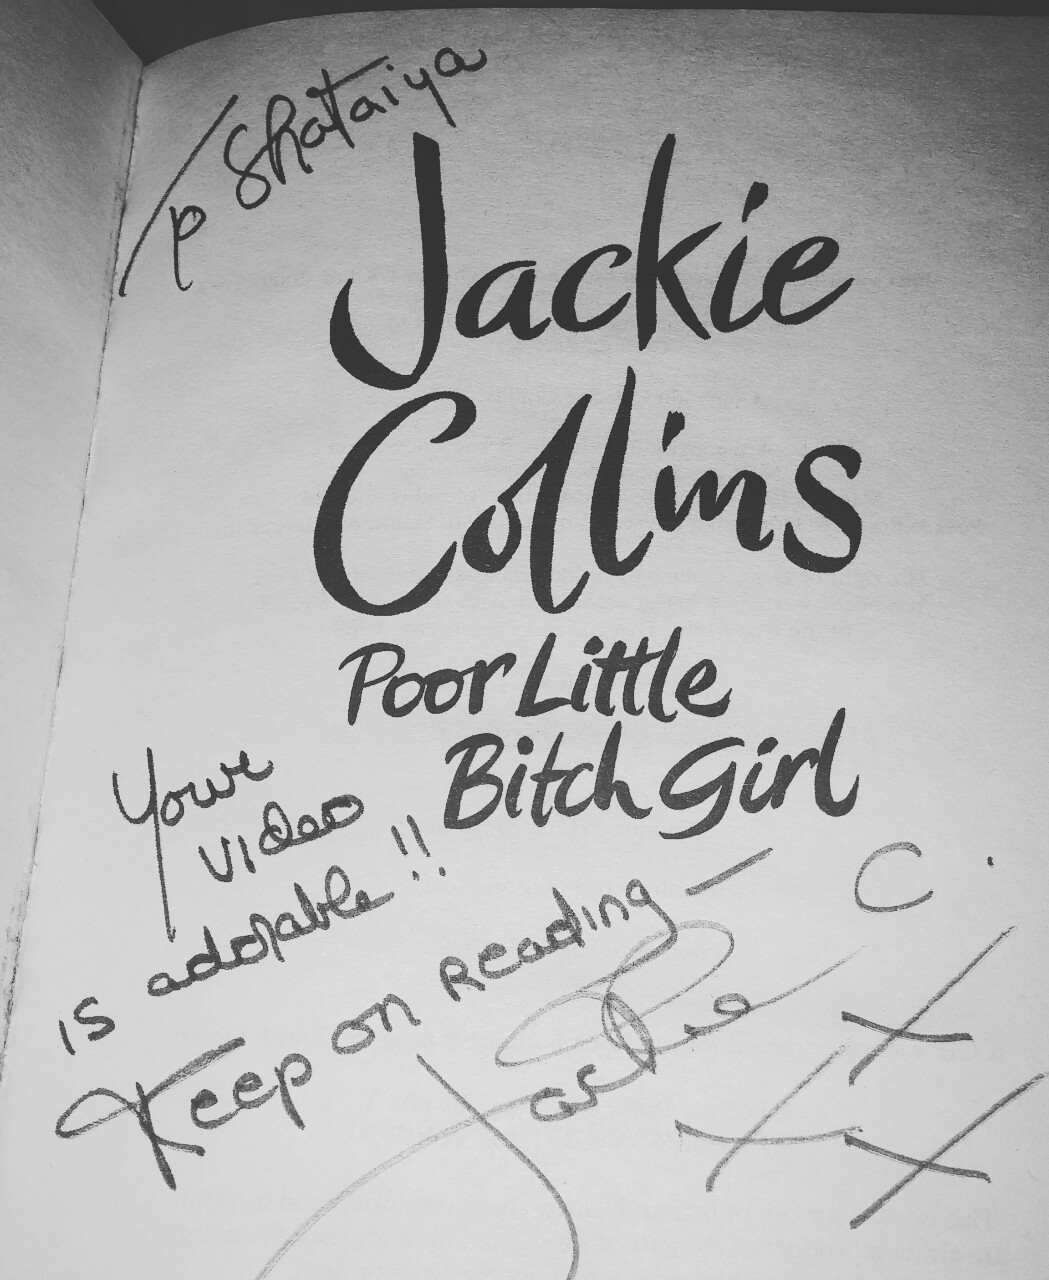 To Shataiya
Jackie
Collins
Poor Little
Bitch Girl
Your
video
is adorable!!
Keep on reading —
Jackie C.
XXX